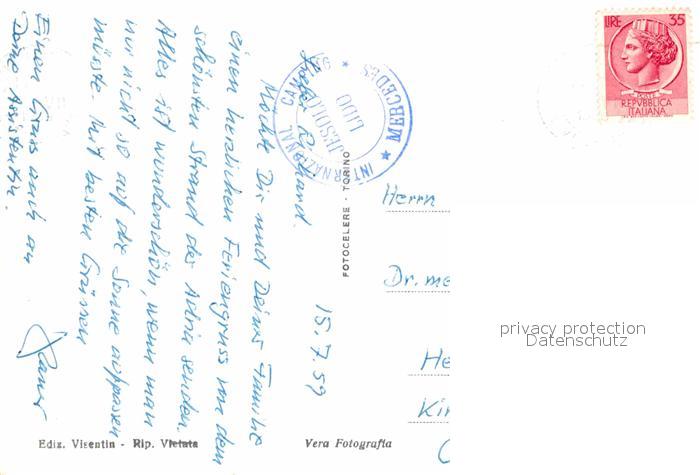 15.7.59
Liebe Richard.
Möcht Dir und Deiner Familie
einen herzlichen Feriengruss von dem
schönsten Strand der Adria senden.
Alles ist wunderschön, wenn man
nur nicht so auf die Sonne aufpassen
müsste. Mit besten Grüssen
Einen Gruss auch an
Deine Assistentin.
INTERNAZIONAL CAM
MERCEDES
JESOLO
LIDO
LIRE 35
POSTE
REPVBBLICA
ITALIANA
Herrn
Dr. me
He
Kir
FOTOCELERE - TORINO
Ediz. Visentin - Rip. Vietata
Vera Fotografia
privacy protection
Datenschutz